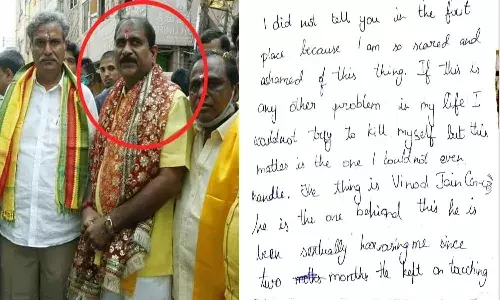 I did not tell you in the first
place because I am so scared and
ashamed of this thing. If this is
any other problem in my life I
wouldnot try to kill myself but this
matter is the one I couldnot even
handle. The thing is Vinod Jain
he is the one behind this he is
been sexually harrasing me since
two months He kept on touching